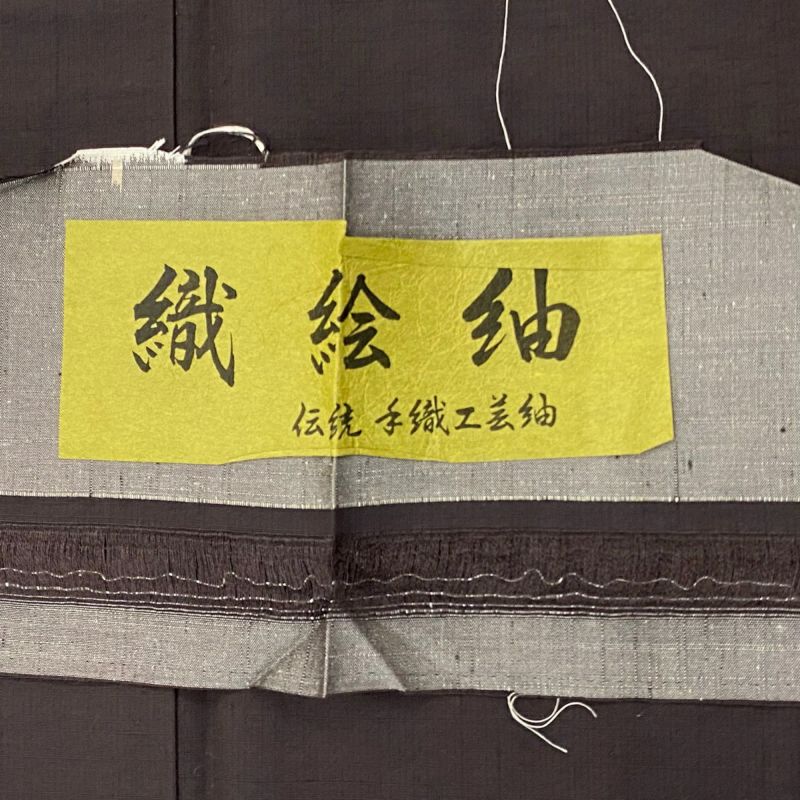 織絵紬
伝統 手織工芸紬